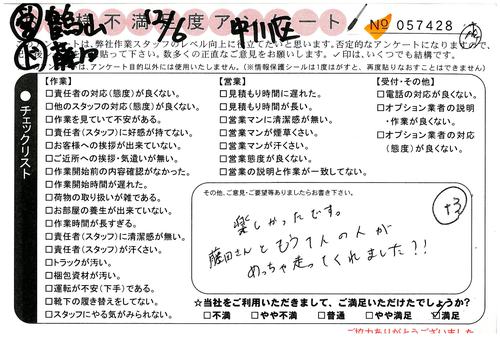 お客様不満足度アンケート
12/6
中川区
No 057428
トは、弊社作業スタッフのレベル向上に役立てたいと思います。否定的なアンケートになりますので、
貼って下さい。数多くの正直なご意見をお願いします。✓印は、いくつでも結構です。
は、アンケート目的以外には使用いたしません。(※情報保護シールは1度がすと、再度貼りなおすことはできません)
チェックリスト
【作業】
□責任者の対応(態度)が良くない。
□他のスタッフの対応(態度)が良くない。
□作業を見ていて不安がある。
□責任者(スタッフ)に好感が持てない。
□お客様への挨拶が出来ていない。
□ご近所への挨拶・気遣いが無い。
□作業開始前の内容確認がなかった。
□作業開始時間が遅れた。
□荷物の取り扱いが雑である。
□お部屋の養生が出来ていない。
□作業時間が長すぎる。
□責任者(スタッフ)に清潔感が無い。
□責任者(スタッフ)が汗くさい。
□トラックが汚い。
□梱包資材が汚い。
□運転が不安(下手)である。
□靴下の履き替えをしてない。
□スタッフにやる気がみられない。
【営業】
□見積もり時間に遅れた。
□見積もり時間が長い。
□営業マンに清潔感が無い。
□営業マンが煙草くさい。
□営業マンが汗くさい。
□営業態度が良くない。
□営業の説明と作業が一致してない。
【受付・その他】
□電話の対応が良くない。
□オプション業者の説明
・作業が良くない。
□オプション業者の対応
(態度)が良くない。
その他、ご意見・ご要望等ありましたらお書き下さい。
楽しかったです。
藤田さんともう1人の人が
めっちゃ走ってくれました?!
+3
☆当社をご利用いただきまして、ご満足いただけたでしょうか?
□不満 □やや不満 □普通 □やや満足 ☑満足
ご協力ありがとうございました